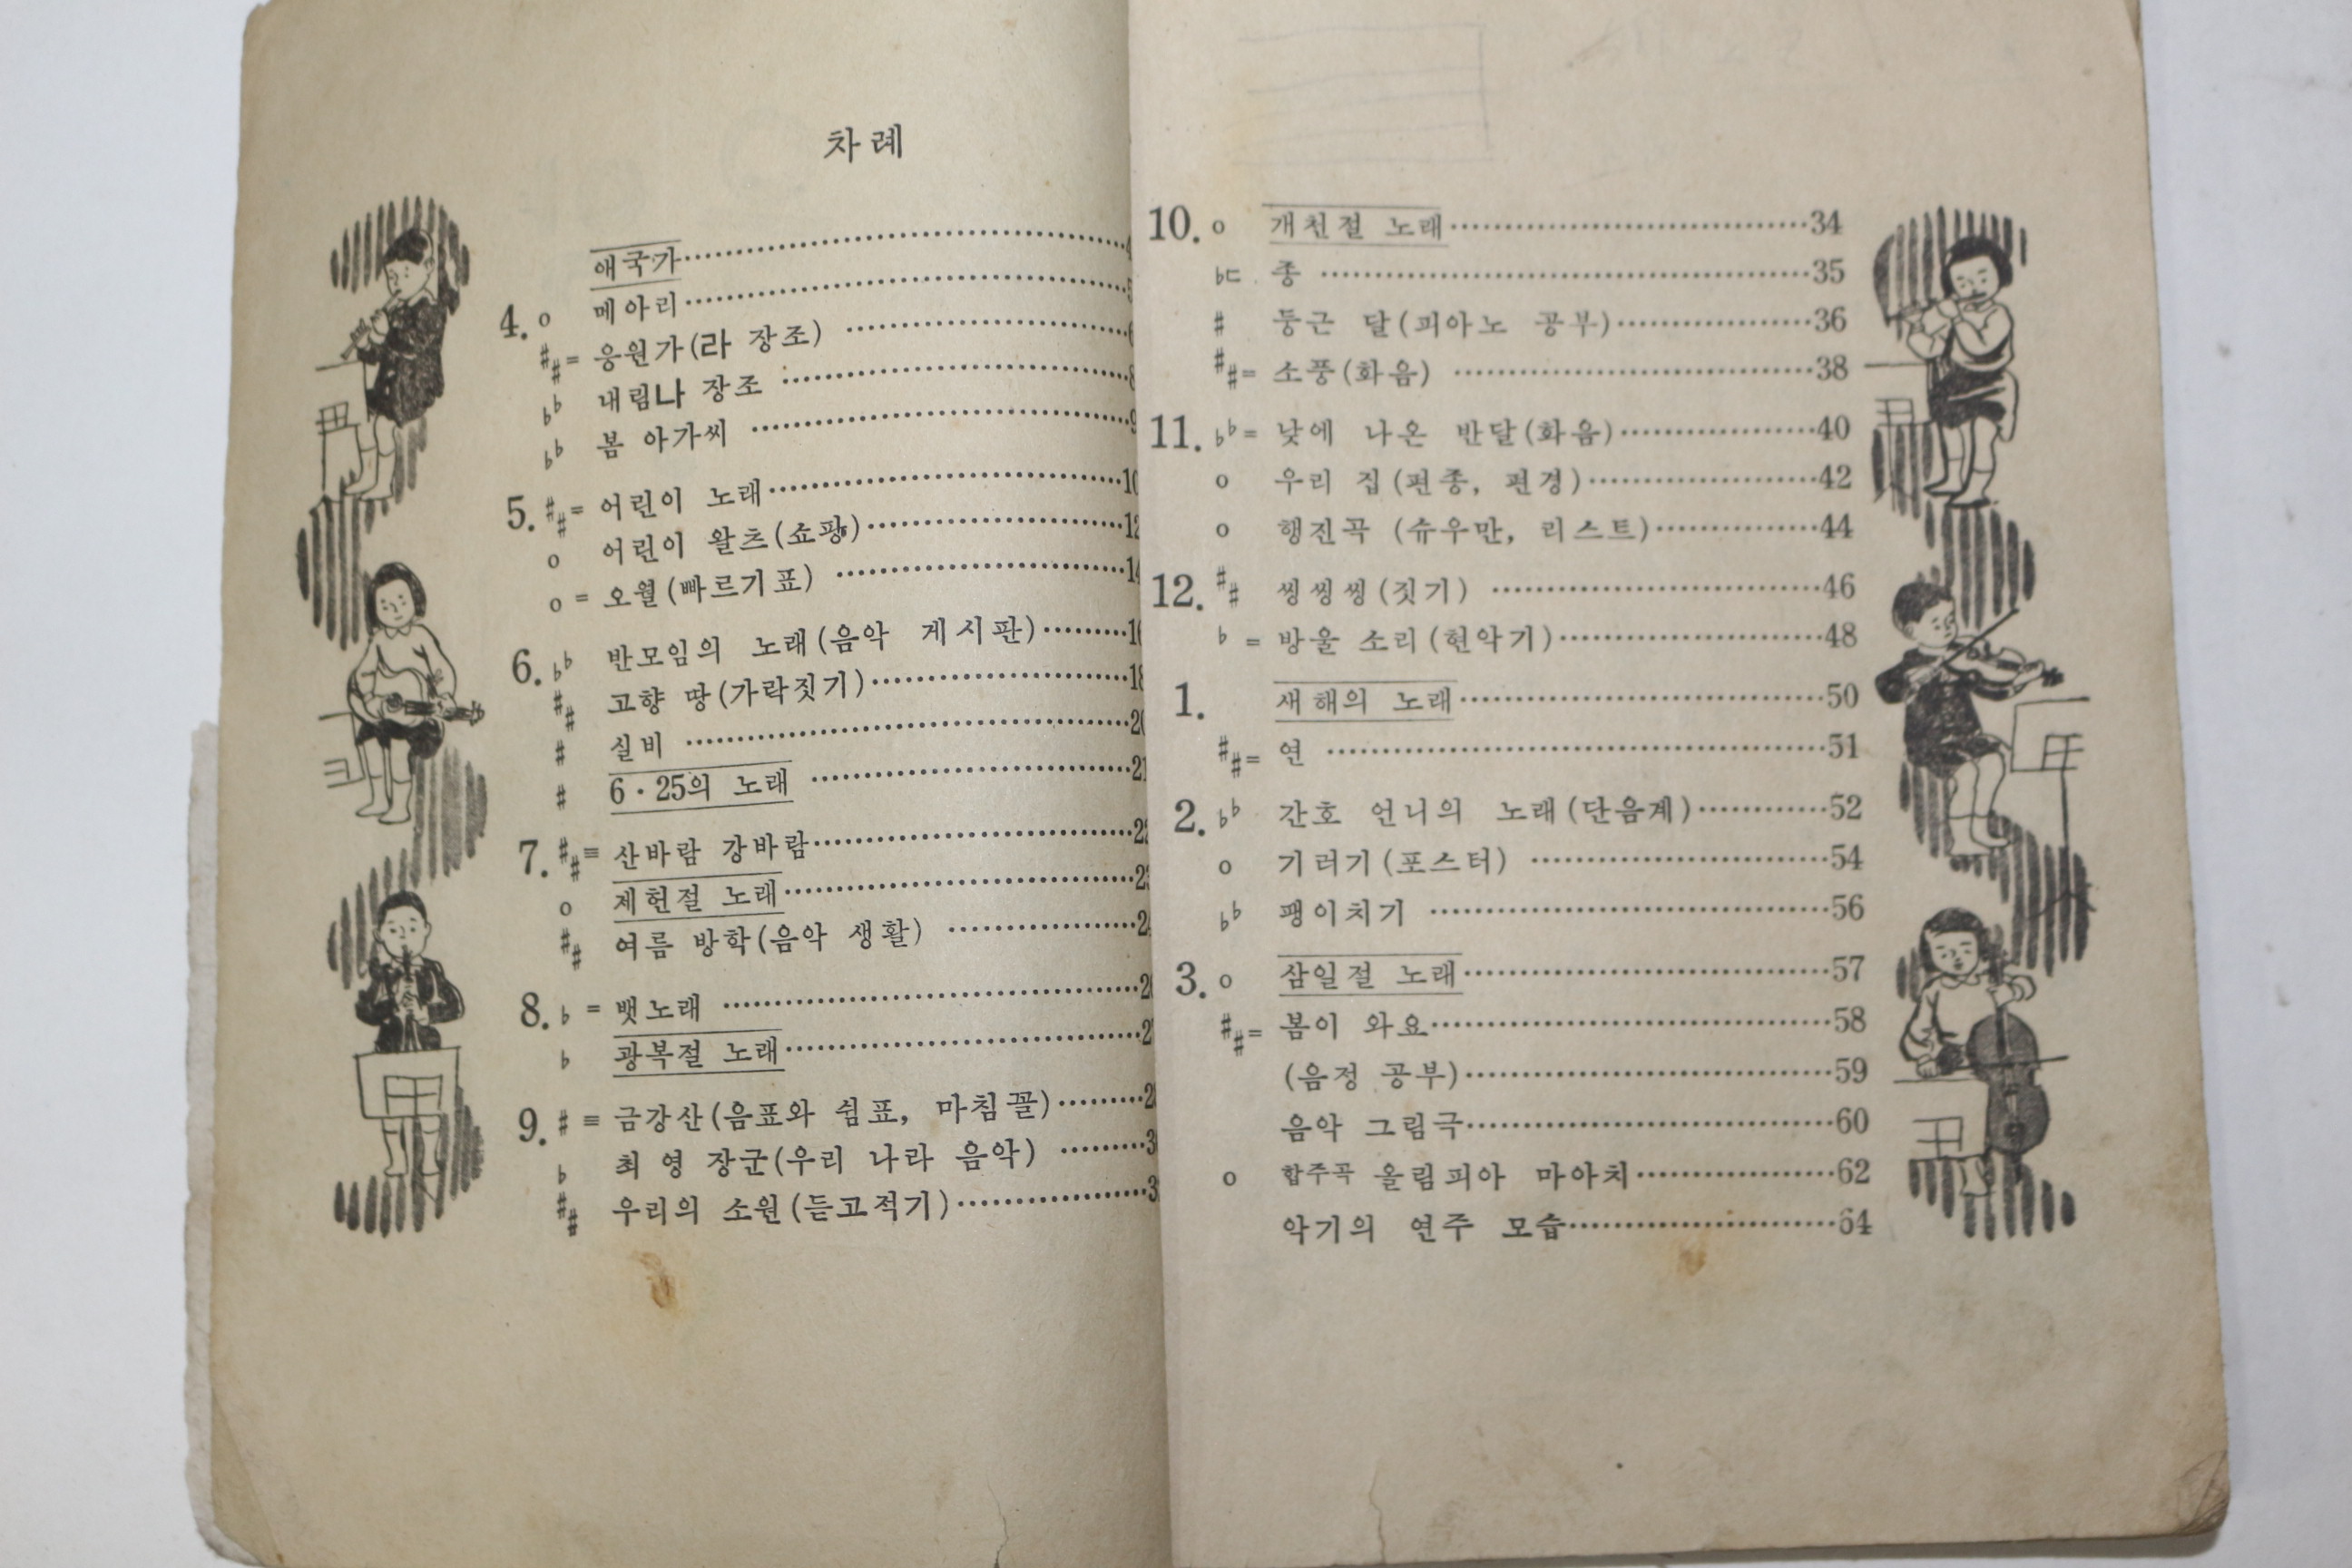 차례
애국가 4
4. o 메아리 5
♯♯= 응원가(라 장조) 6
♭♭ 내림나 장조 8
♭♭ 봄 아가씨 9
5. ♯♯= 어린이 노래 10
o 어린이 왈츠(쇼팽) 12
o = 오월(빠르기표) 14
6. ♭♭ 반모임의 노래(음악 게시판) 16
♯♯ 고향 땅(가락짓기) 18
♯ 실비 20
♯ 6·25의 노래 21
7. ♯♯≡ 산바람 강바람
o 제헌절 노래
♯♯ 여름 방학(음악 생활)
8. ♭ = 뱃노래
♭ 광복절 노래
9. ♯ ≡ 금강산(음표와 쉼표, 마침꼴)
♭ 최 영 장군(우리 나라 음악)
♯♯ 우리의 소원(듣고적기)
10. o 개천절 노래 34
♭ㄷ 종 35
♯ 둥근 달(피아노 공부) 36
♯♯= 소풍(화음) 38
11. ♭♭= 낮에 나온 반달(화음) 40
o 우리 집(편종, 편경) 42
o 행진곡 (슈우만, 리스트) 44
12. ♯♯ 씽씽씽(짓기) 46
♭ = 방울 소리(현악기) 48
1. 새해의 노래 50
♯♯= 연 51
2. ♭♭ 간호 언니의 노래(단음계) 52
o 기러기(포스터) 54
♭♭ 팽이치기 56
3. o 삼일절 노래 57
♯♯= 봄이 와요 58
(음정 공부) 59
음악 그림극 60
o 합주곡 올림피아 마아치 62
악기의 연주 모습 64